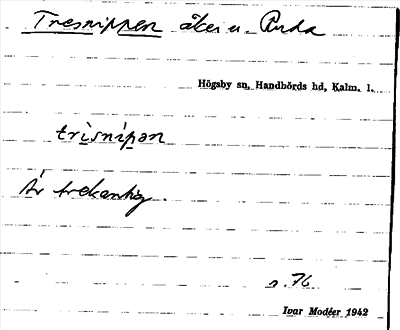 Tresnippen åker u. Ruda
Högsby sn, Handbörds hd, Kalm. l.
trìsnípən
Är trekantig.
s. 76
Ivar Modéer 1942